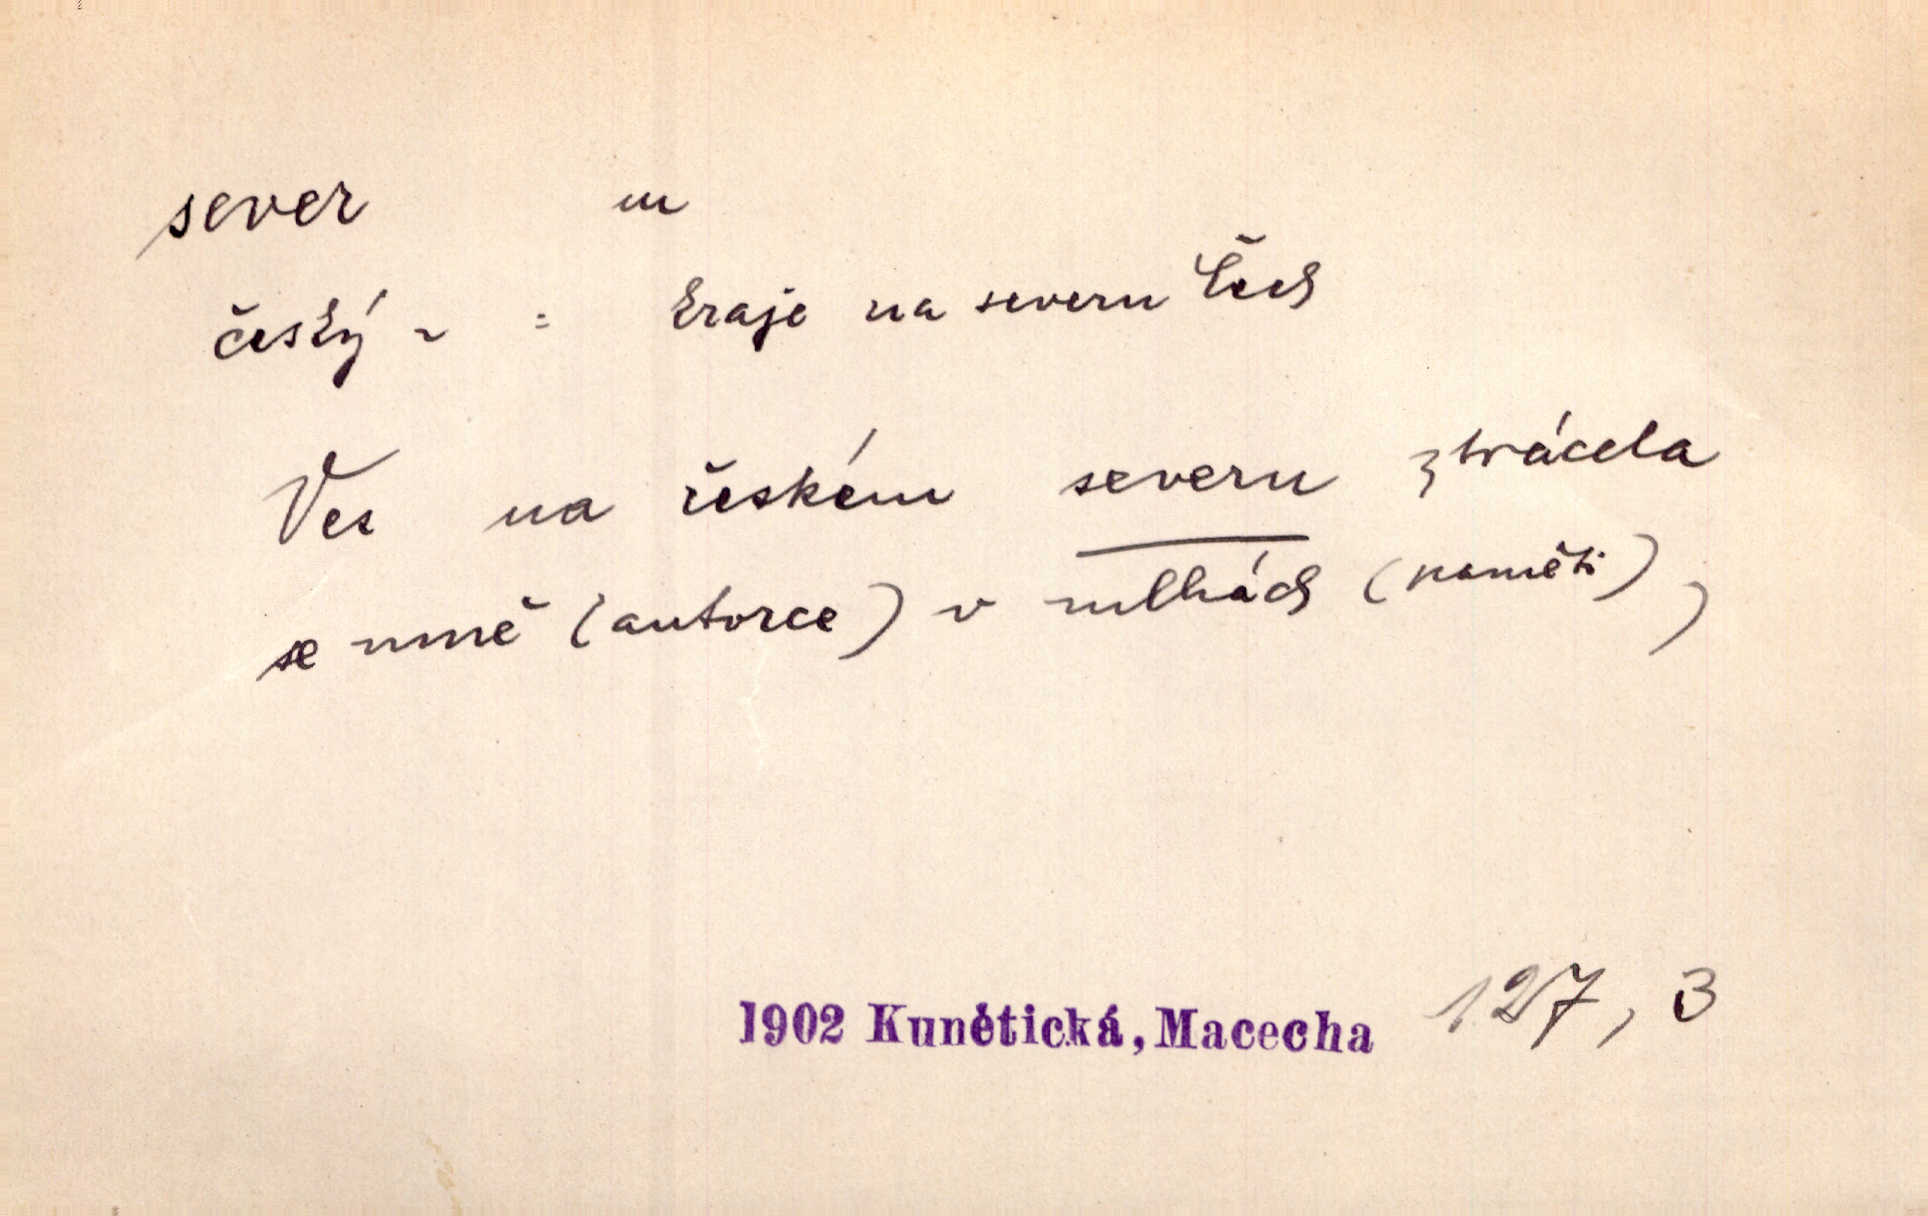 sever m
český ~ = kraje na severu Čech
Ves na českém severu ztrácela
se mně (autorce) v mlhách (paměti),
1902 Kunětická, Macecha 127, 3